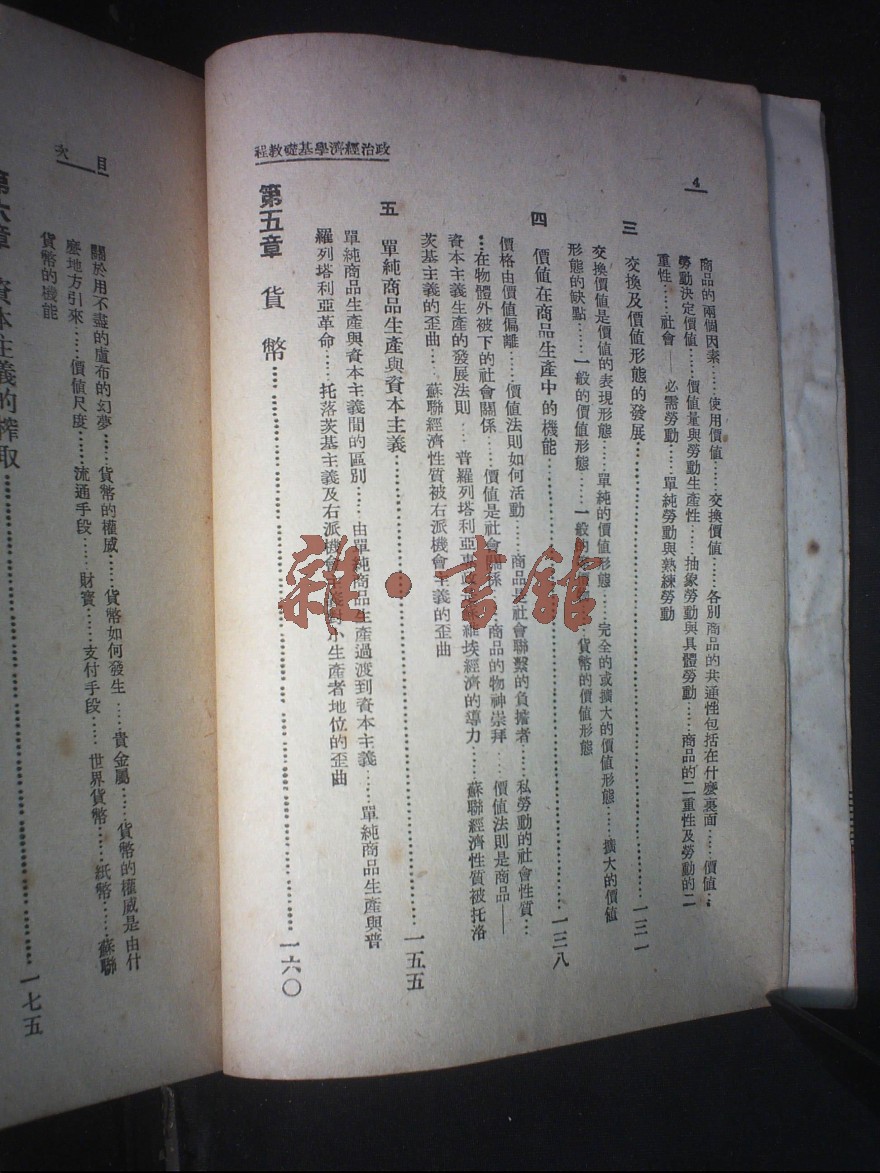 政治經濟學基礎教程
4
商品的兩個因素……使用價值……交換價值……各別商品的共通性包括在什麼裏面……價值…
勞動決定價值……價值量與勞動生產性……抽象勞動與具體勞動……商品的二重性及勞動的二
重性……社會——必需勞動……單純勞動與熟練勞動
三 交換及價值形態的發展……一三一
交換價值是價值的表現形態……單純的價值形態……完全的或擴大的價值形態……擴大的價值
形態的缺點……一般的價值形態……一般的 貨幣的價值形態
四 價值在商品生產中的機能……一三八
價格由價值偏離……價值法則如何活動……商品是社會聯繫的負擔者……私勞動的社會性質…
…在物體外被下的社會關係……價值是社會關係……商品的物神崇拜……價值法則是商品——
資本主義生產的發展法則……普羅列塔利亞 經濟的導力……蘇聯經濟性質被托洛
茨基主義的歪曲……蘇聯經濟性質被右派機會主義的歪曲
五 單純商品生產與資本主義……一五五
單純商品生產與資本主義間的區別……由單純商品生產過渡到資本主義……單純商品生產與普
羅列塔利亞革命……托落茨基主義及右派機會主義對小生產者地位的歪曲
第五章 貨幣……一六〇
目次
關於用不盡的盧布的幻夢……貨幣的權威……貨幣如何發生……貴金屬……貨幣的權威是由什
麼地方引來……價值尺度……流通手段……財寶……支付手段……世界貨幣……紙幣……蘇聯
貨幣的機能
第六章 資本主義的榨取……一七五
雜·書館